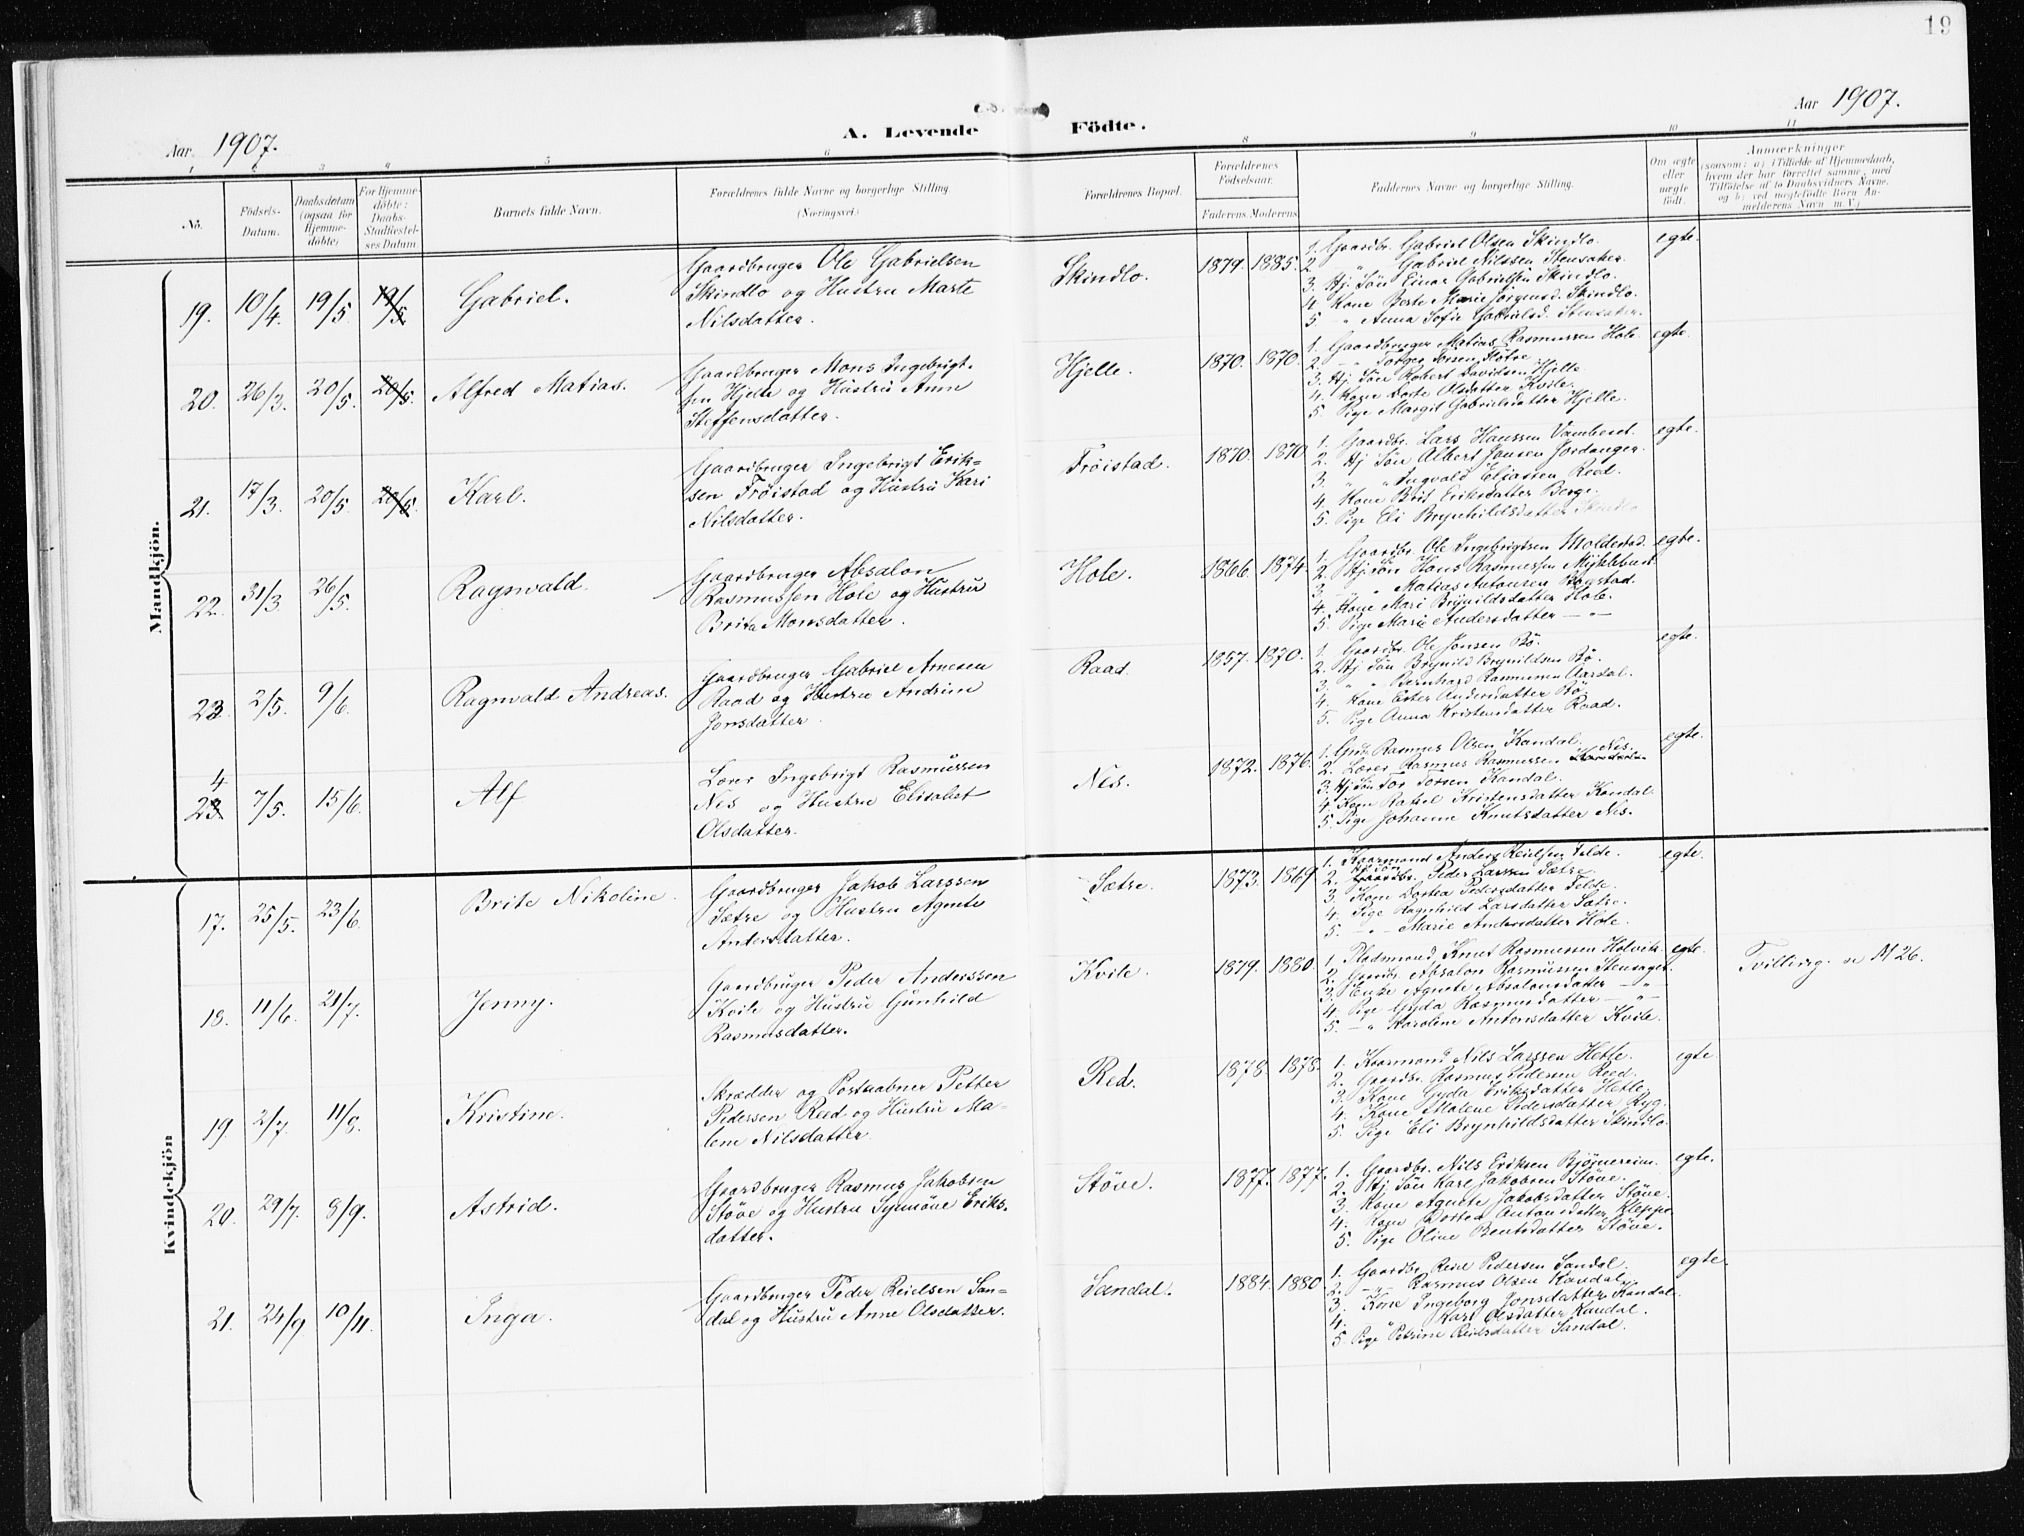 19
Aar 1907.
A. Levende Födte.
Aar 1907.
1 2 3 4 5 6 8 9 10 11
No.
Födsels-Datum.
Daabsdatum (ogsaa for Hjemme-döbte)
For Hjemme-döbte: Daabs-Stadfæstelses Datum
Barnets fulde Navn.
Forældrenes fulde Navne og borgerlige Stilling (Næringsvei.)
Forældrenes Bopæl.
Forældrenes Födselsaar.
Faderens. Moderens.
Faddernes Navne og borgerlige Stilling.
Om ægte eller uægte födt.
Anmærkninger
(saasom: a) i Tilfælde af Hjemmedaab, hvem der har forrettet samme, med Tilföielse af to Daabsvidners Navne, og b) ved uægtefödte Börn Anmelderens Navn m. V.)
Mandkjön.
19. 10/4. 19/5. 19/5 Gabriel.
Gaardbruger Ole Gabrielsen
Skindlo og Hustru Marte
Nilsdatter.
Skindlo. 1879. 1885. egte.
1. Gaardbr. Gabriel Olsen Skindlo.
2. " Gabriel Nilssen Stensaker.
3. Hj. Søn Einar Gabrielsen Skindlo.
4. Kone Berte Marie Jørgensd. Skindlo.
5. " Anna Sofie Gabrielsd. Stensaker.
20. 26/3. 20/5. 20/5. Alfred Matias.
Gaardbruger Mons Ingebrigt-
sen Hjelle og Hustru Anne
Steffensdatter.
Hjelle. 1870. 1870. egte.
1. Gaardbruger Matias Rasmussen Hole.
2. Torger Torsen
3. Hj. Søn Robert Davidsen Hjelle.
4. Kone Dorte Olsdatter Kvile.
5. Pige Margit Gabrielsdatter Hjelle.
21. 17/3. 20/5. 20/5. Karl.
Gaardbruger Ingebrigt Erik-
sen Frøistad og Hustru Kari
Nilsdatter.
Frøistad. 1870. 1870 egte.
1. Gaardbr. Lars Hanssen Vamberet.
2. Hj Søn Albert Jansen Jordanger.
3. " " Ingvald Eliassen Reed.
4. Kone Brit Eriksdatter Berge.
5. Pige Eli Brynhildsdatter Skindlo
22. 31/3. 26/5. Ragnvald.
Gaardbruger Absalon
Rasmussen Hole og Hustru
Brita Monsdatter.
Hole. 1866. 1874. egte.
1. Gaardbr. Ole Ingebrigtsen Moldestad.
2. Hj. Søn Hans Rasmussen Myklebust
3. " " Matias Antonsen Bogstad.
4. Kone Mari Brynildsdatter Hole.
5. Pige Marie Andersdatter — " —
23. 2/5. 9/6. Ragnvald Andreas.
Gaardbruger Gabriel Arnesen
Raad og Hustru Andrine
Jonsdatter.
Raad. 1857. 1870. egte.
1. Gaardbr. Ole Jonsen Bø.
2. Hj Søn Brynild Brynildsen Bø.
3. " " Bernhard Rasmussen Aardal.
4. Kone Ester Andersdatter Bø.
5. Pige Anna Kristensdatter Raad.
4
23 7/5. 15/6. Alf
Lærer Ingebrigt Rasmussen
Nes og Hustru Elisabet
Olsdatter.
Nes. 1872. 1876. egte.
1. Gbr. Rasmus Olsen Kandal.
2. Lærer Rasmus Rasmussen Nes.
3. Hj Søn Tor Torsen Kandal.
4. Kone Rakel Kristensdatter Kandal.
5. Pige Johanne Knutsdatter Nes.
Kvindekjön
17. 25/5. 23/6. Brite Nikoline.
Gaardbruger Jakob Larssen
Sætre og Hustru Agnete
Andersdatter.
Sætre. 1873. 1869 egte.
1. Kaarmand Anders Reielsen Felde.
2. Hj. Søn Peder Larssen Sætre.
3. Kone Dortea Pedersdatter Felde.
4. Pige Ragnhild Larsdatter Sætre.
5. — " — Marie Andersdatter Hole.
18. 11/6. 21/7. Jenny.
Gaardbruger Peder Anderssen
Kvile og Hustru Gunhild
Rasmusdatter.
Kvile. 1879. 1880. egte. Tvilling. se M 26.
1. Pladsmand Knut Rasmussen Holvik.
2. Gaardbr. Absalon Rasmussen Stensager
3. Enke Agnete Absalonsdatter — " —
4. Pige Gyda Rasmusdatter — " —
5. — " Karoline Antonsdatter Kvile.
19. 2/7. 11/8. Kristine.
Skrædder og Postaabner Petter
Pedersen Reed og Hustru Ma-
lene Nilsdatter.
Red. 1878. 1878. egte
1. Kaarmand Nils Larssen Hetle.
2. Gaardbr. Rasmus Pedersen Reed.
3. Kone Gyda Eriksdatter Hetle.
4. Kone Malene Pedersdatter Ryg.
5. Pige Eli Brynhildsdatter Skindlo.
20. 29/7. 8/9. Astrid.
Gaardbruger Rasmus Jakobsen
Støve og Hustru Synnøve Eriks-
datter.
Støve. 1877. 1877. egte.
1. Gaardbr. Nils Eriksen Bjørnereim.
2. Hj Søn Karl Jakobsen Støve.
3. Kone Agnete Jakobsdatter Støve.
4. Kone Dortea Antonsdatter Kleppe.
5. Pige Oline Bentsdatter Støve.
21. 24/9 10/11. Inga.
Gaardbruger Peder Reielsen San-
dal og Hustru Anne Olsdatter.
Sandal. 1884. 1880 egte.
1. Gaardbr Reiel Pedersen Sandal.
2. — " — Rasmus Olsen Kandal.
3. Kone Ingeborg Jonsdatter Kandal.
4. " Kari Olsdatter Kandal.
5. Pige Petrine Reielsdatter Sandal.